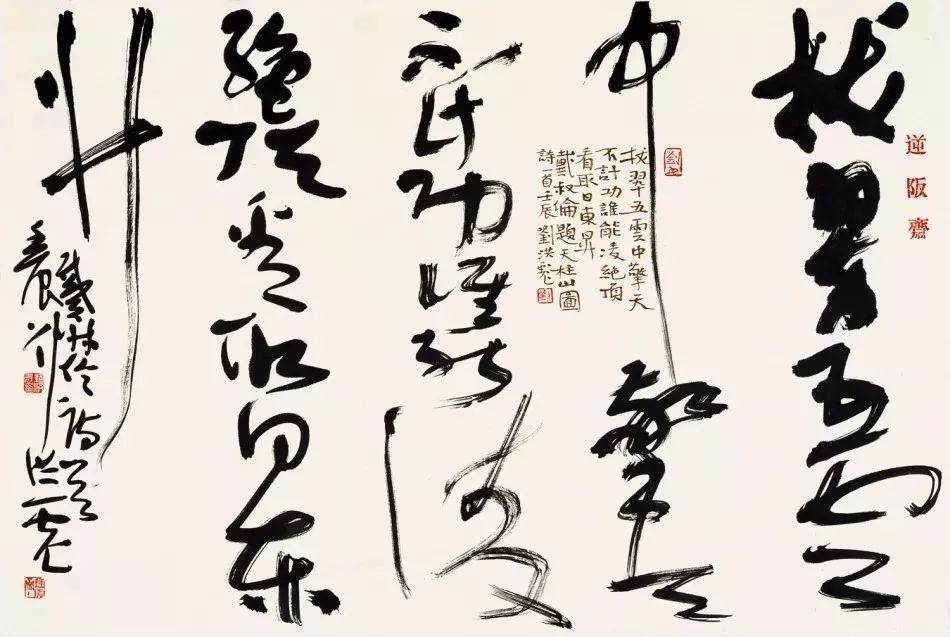 逆阪齋
拔翠五雲
中擎天
拔翠五雲中擎天
不計功誰能凌絕頂
看取日東昇
戴叔倫題天柱山圖
詩一首壬辰劉洪彪
不計功誰能凌
絕頂看取日東
升
戴叔倫詩洪彪
壬辰劉